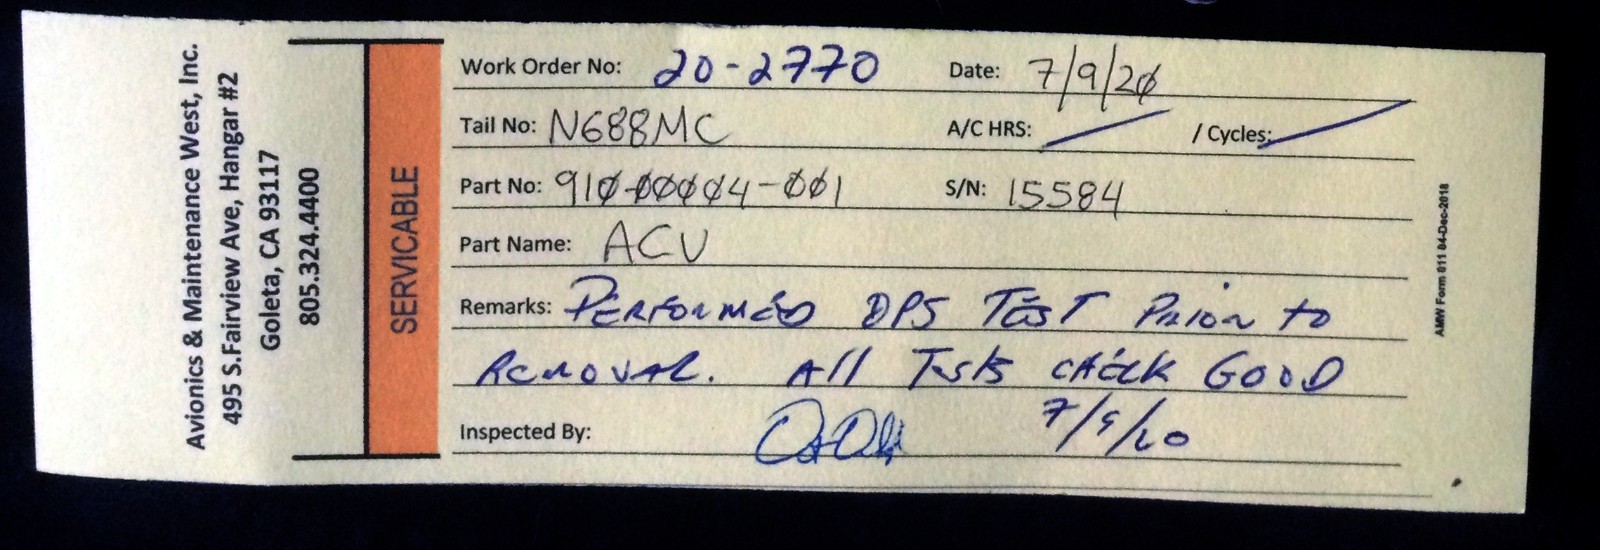 Avionics & Maintenance West, Inc.
495 S.Fairview Ave, Hangar #2
Goleta, CA 93117
805.324.4400
SERVICABLE
Work Order No: 20-2770 Date: 7/9/20
Tail No: N688MC A/C HRS: / Cycles:
Part No: 910-00004-001 S/N: 15584
Part Name: ACU
Remarks: PERFORMED OPS TEST PRIOR to
REMOVAL. All Tests CHECK GOOD
Inspected By: 7/9/20
AMW Form 011 84-Dec-2018